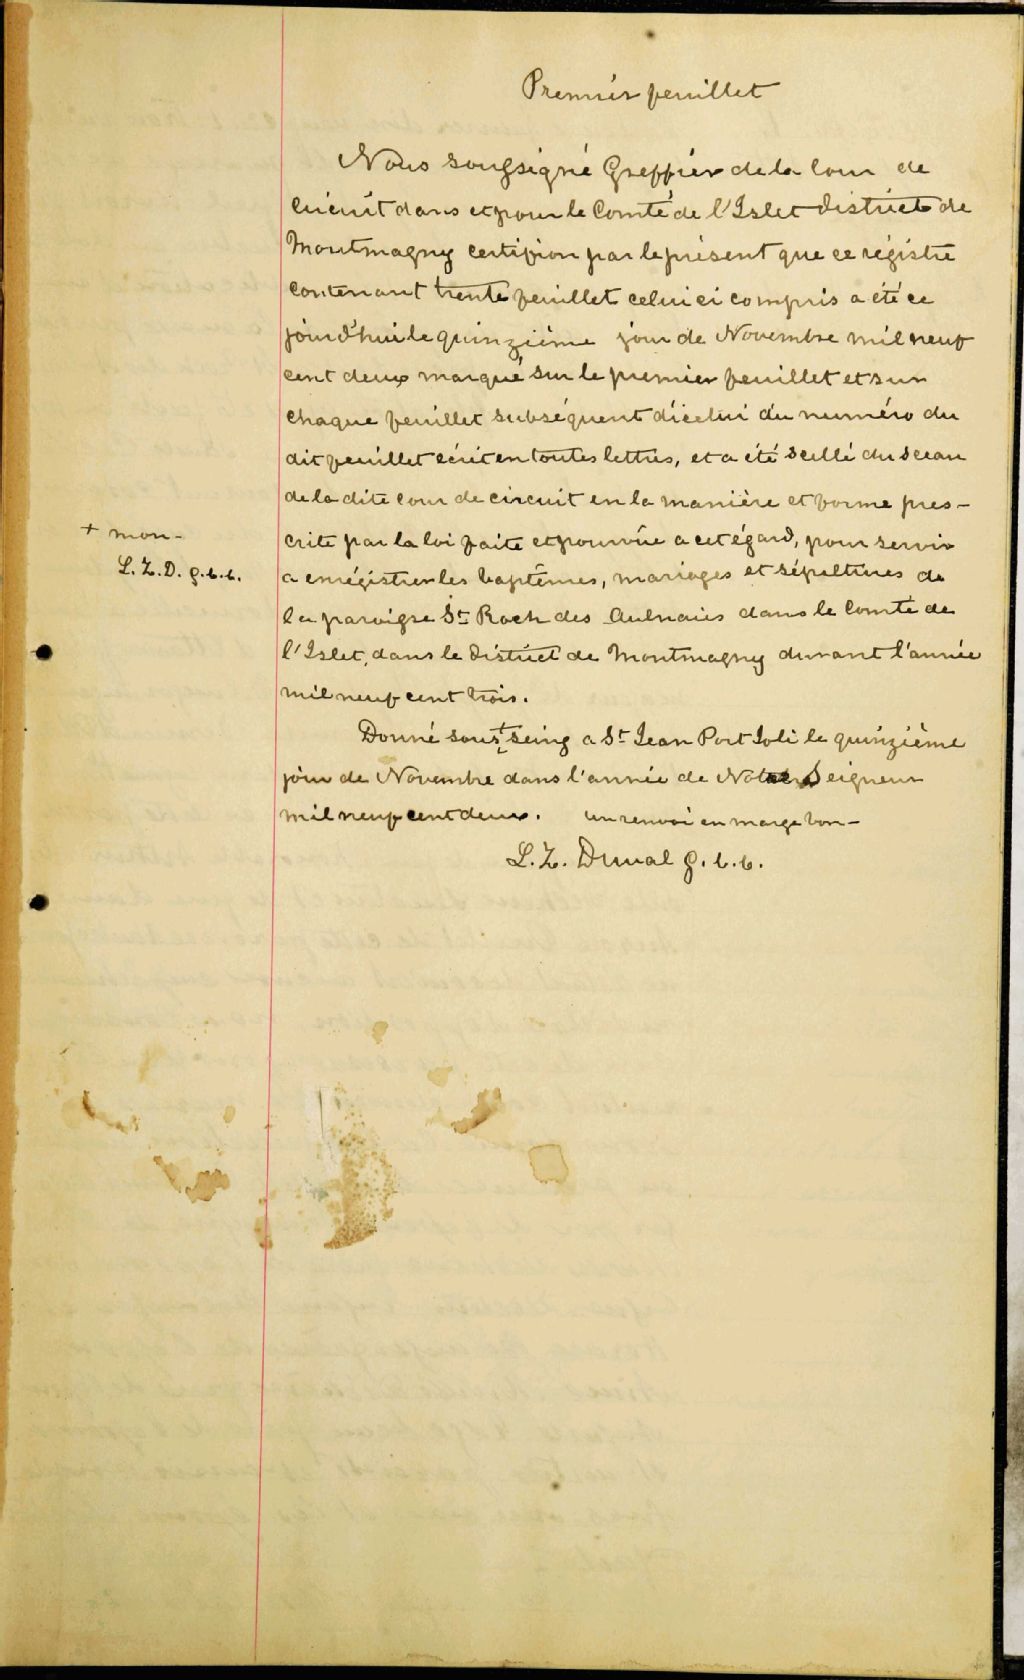 Premier feuillet
Nous sousigné Greffier de la Cour de
Circuit dans et pour le Comté de l'Islet District de
Montmagny certifion par le présent que ce régistre
contenant trente feuillet celui ci compris a été ce
jourd'hui le quinzième jour de Novembre mil neuf
cent deux marqué sur le premier feuillet et sur
chaque feuillet subséquent d'icelui du numéro du
dit feuillet écrit en toutes lettres, et a été scellé du sceau
de la dite cour de circuit en la manière et forme pres-
crite par la loi faite et pourvûe a cet égard, pour servir
+ mon-
L. Z. D. g.c.c.
a enrégistrer les baptêmes, mariages et sépultures de
la paroisse St Roch des Aulnais dans le Comté de
l'Islet, dans le District de Montmagny durant l'année
mil neuf cent trois.
Donné sous + seing a St Jean Port Joli le quinzième
jour de Novembre dans l'année de Notre Seigneur
mil neuf cent deux. un renvoi en marge bon-
L. Z. Duval g.c.c.